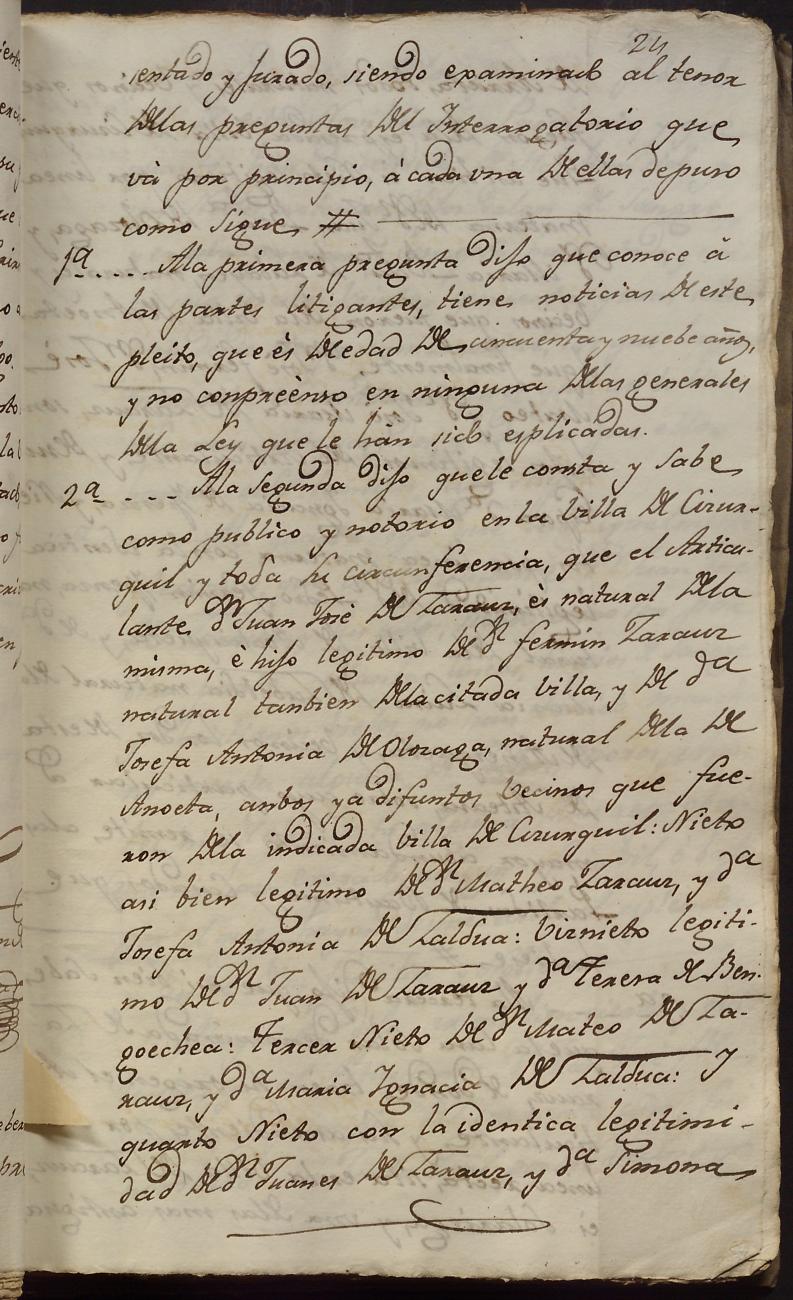 24
sentado y Jurado, siendo examinado al tenor
Dellas preguntas Del Interrogatorio que
vá por principio, á cada una De ellas depuso
como sigue #
1ª.... Ala primera pregunta dijo que conoce á
las partes litigantes, tiene noticias De este
pleito, que és De edad De cincuenta y nuebe años,
y no conpreènso en ninguna Delas generales
Dela Ley que le hàn sido esplicadas.
2ª ... Ala segunda dijo quele consta y sabe
como publico y notorio en la billa De Cizur-
guil y toda su circunferencia, que el Articu-
lante Dn Juan José De Zarauz, ès natural Dela
misma, è hijo legitimo De Dn fermin Zarauz
natural tanbien Dela citada billa, y De da
Josefa Antonia De Olozaga, natural Dela De
Anoeta, anbos ya difuntos, becinos que fue-
ron Dela indicada billa De Cizurguil: Nieto
asi bien legitimo De Dn Matheo Zarauz, y da
Josefa Antonia De Zaldua: Virnieto legiti-
mo De Dn Juan De Zarauz y da Teresa De Ben-
goechea: Tercer Nieto De Dn Mateo De Za-
rauz, y da Maria Ignacia De Zaldua: Y
quarto Nieto con la identica legitimi-
dad De Dn Juanes De Zarauz, y da Simona